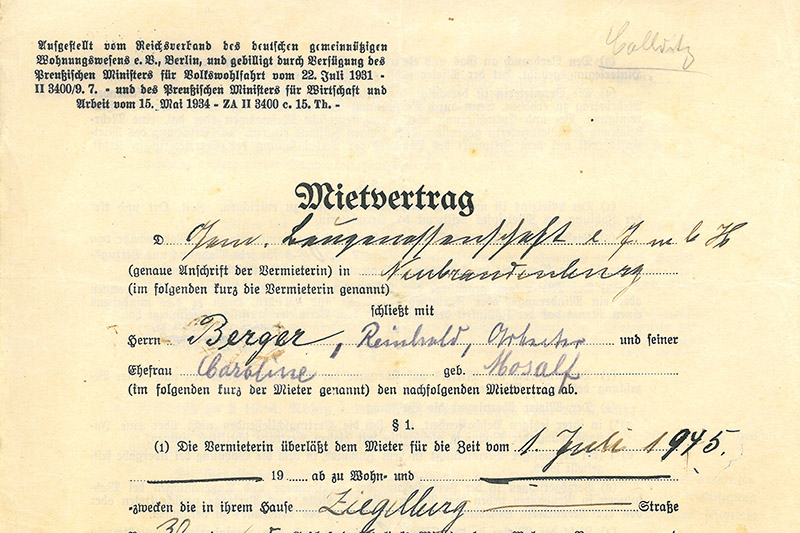 Aufgestellt vom Reichsverband des deutschen gemeinnützigen
Wohnungswesens e. V., Berlin, und gebilligt durch Verfügung des
Preußischen Ministers für Volkswohlfahrt vom 22. Juli 1931 -
II 3400/9. 7. - und des Preußischen Ministers für Wirtschaft und
Arbeit vom 15. Mai 1934 - ZA II 3400 c. 15. Th. -
Mietvertrag
D Gem. Baugenossenschaft e G m b H
(genaue Anschrift der Vermieterin) in Neubrandenburg
(im folgenden kurz die Vermieterin genannt)
schließt mit
Herrn Berger, Reinhold, Arbeiter und seiner
Ehefrau Caroline geb. Mosalf
(im folgenden kurz der Mieter genannt) den nachfolgenden Mietvertrag ab.
§ 1.
(1) Die Vermieterin überläßt dem Mieter für die Zeit vom 1 Juli 1945.
19 ab zu Wohn- und
-zwecken die in ihrem Hause Ziegelberg Straße